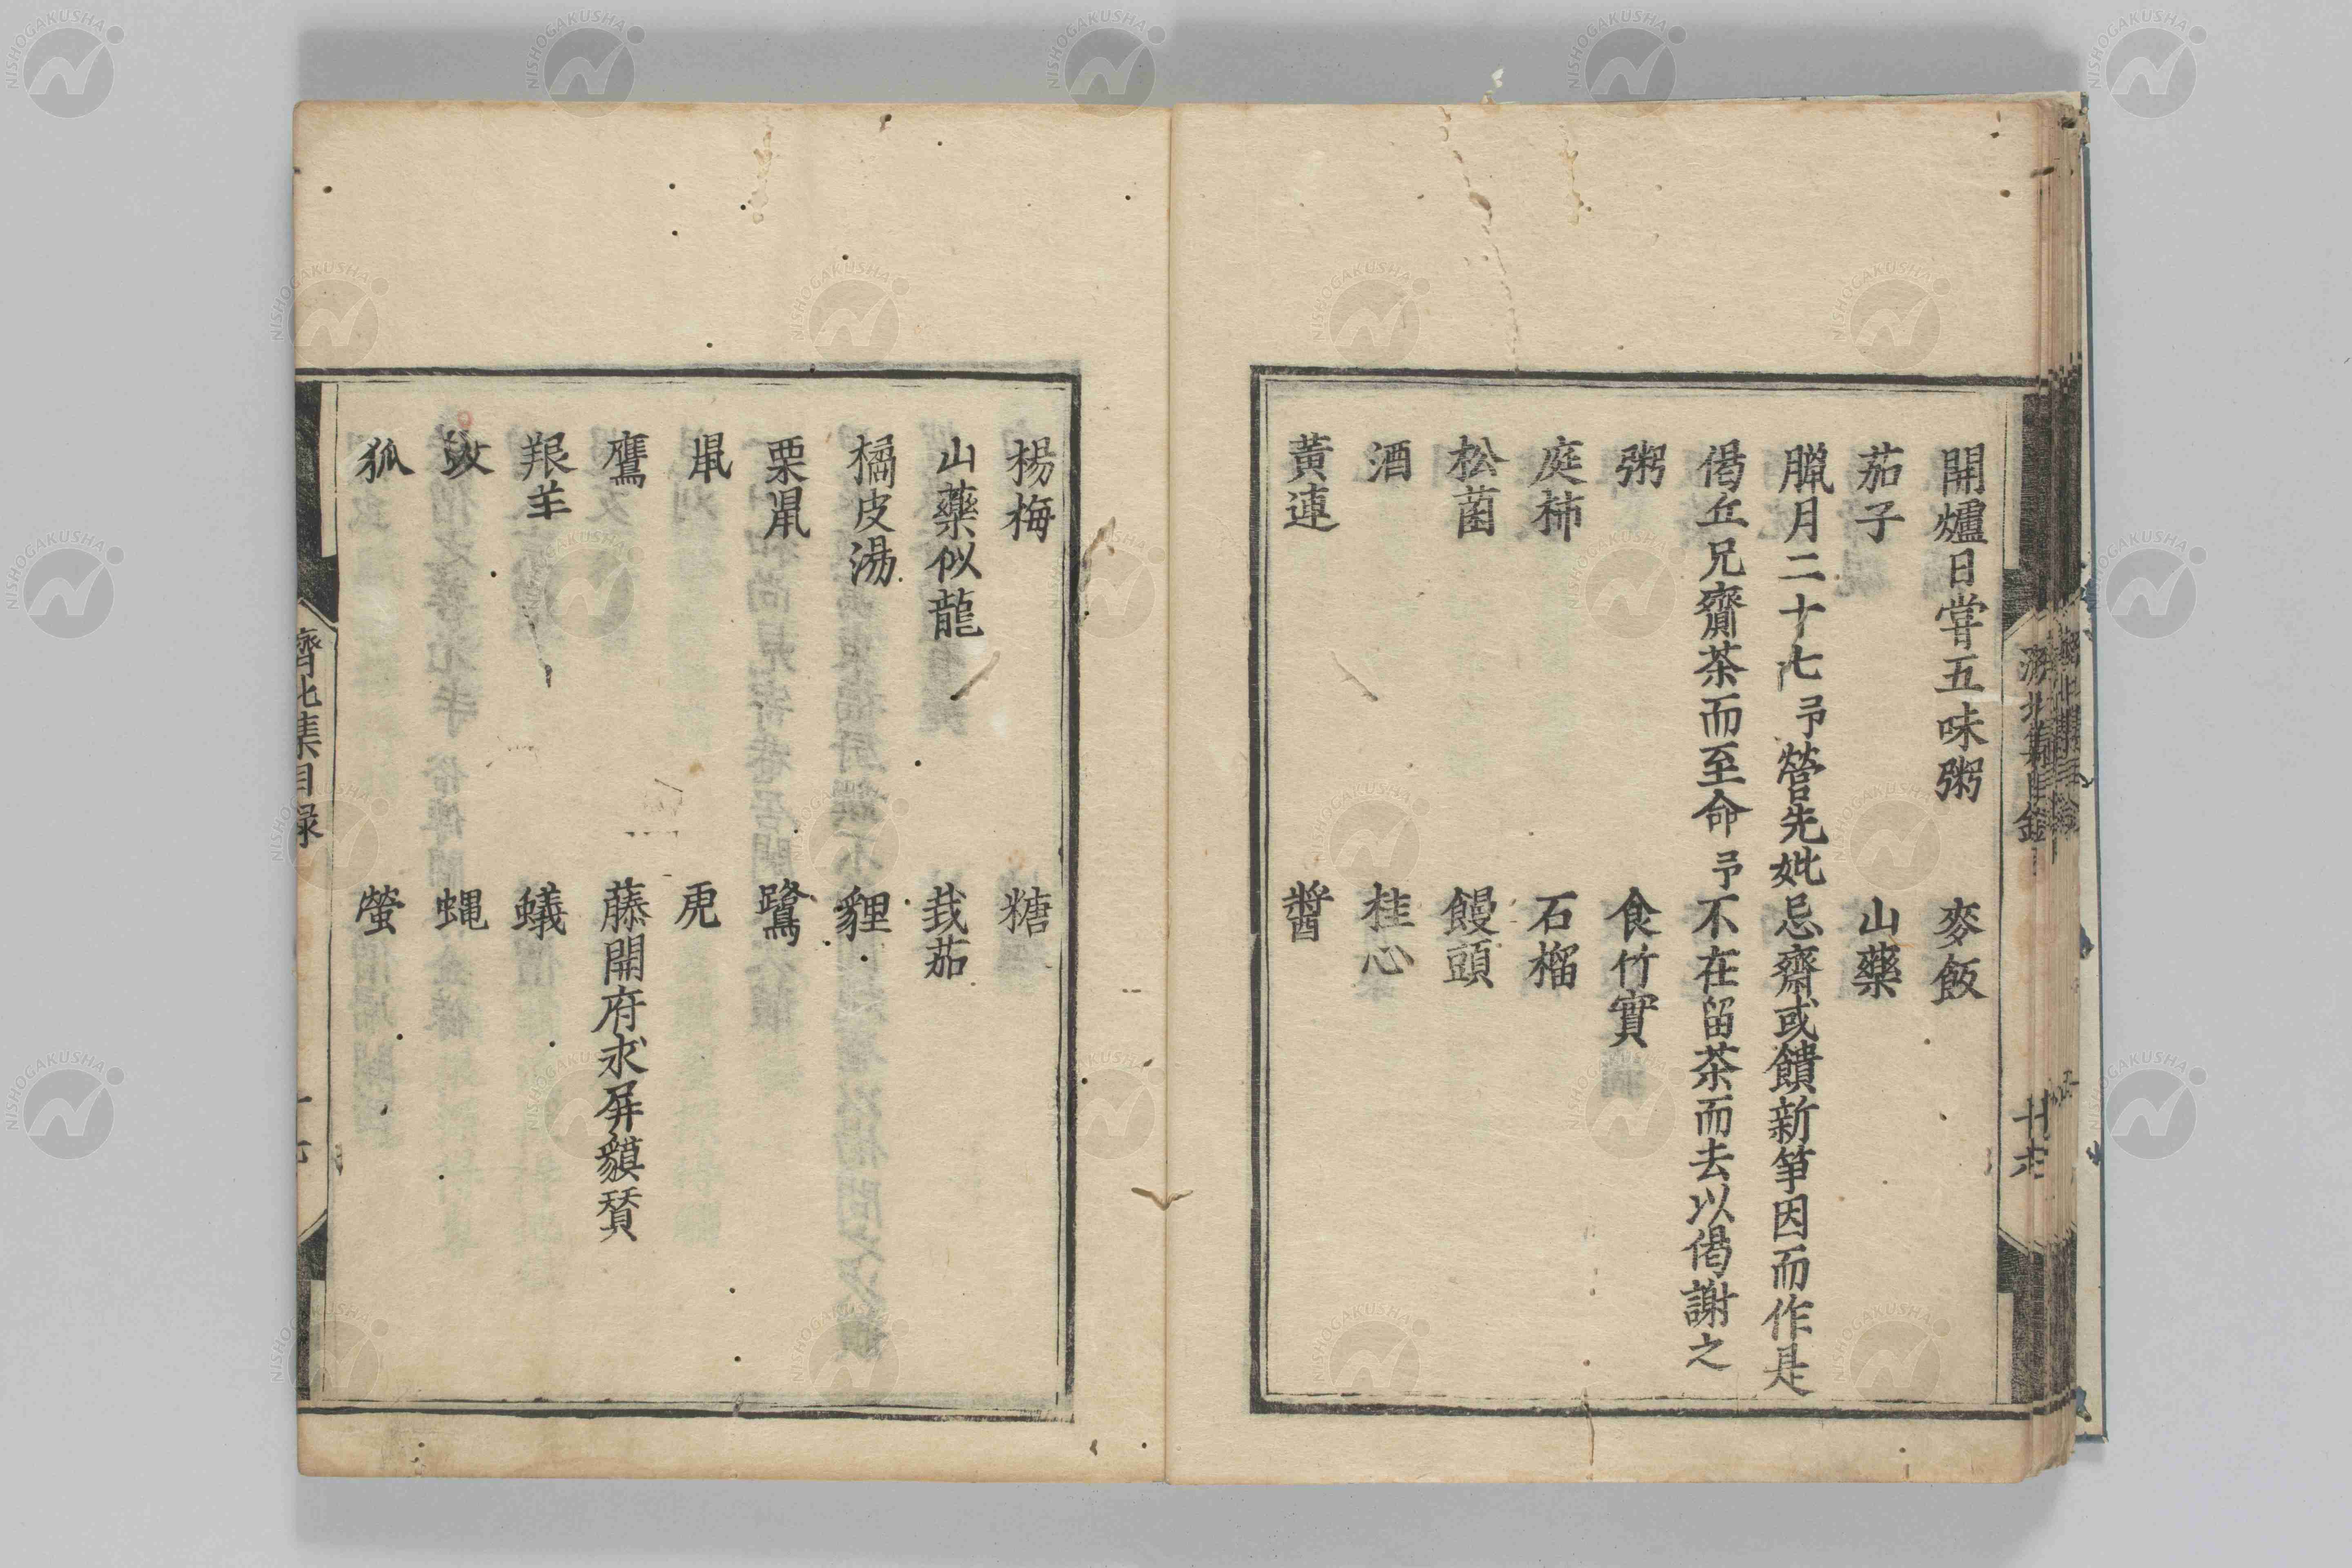 開爐日甞五味粥　麥飯
茄子　山藥
臘月二十七予營先妣忌齋或饋新笋因而作是
偈丘兄齎茶而至命予不在留茶而去以偈謝之
粥　食竹實
庭柿　石榴
松菌　饅頭
酒　桂心
黃連　醬
楊梅　糖
山藥似龍　栽茄
橘皮湯　貍
栗鼠　鷺
鼠　虎
鷹　藤開府求屏貘賛
羖羊　蟻
蚊　蝿
狐　螢
濟北集目録
NISHOGAKUSHA